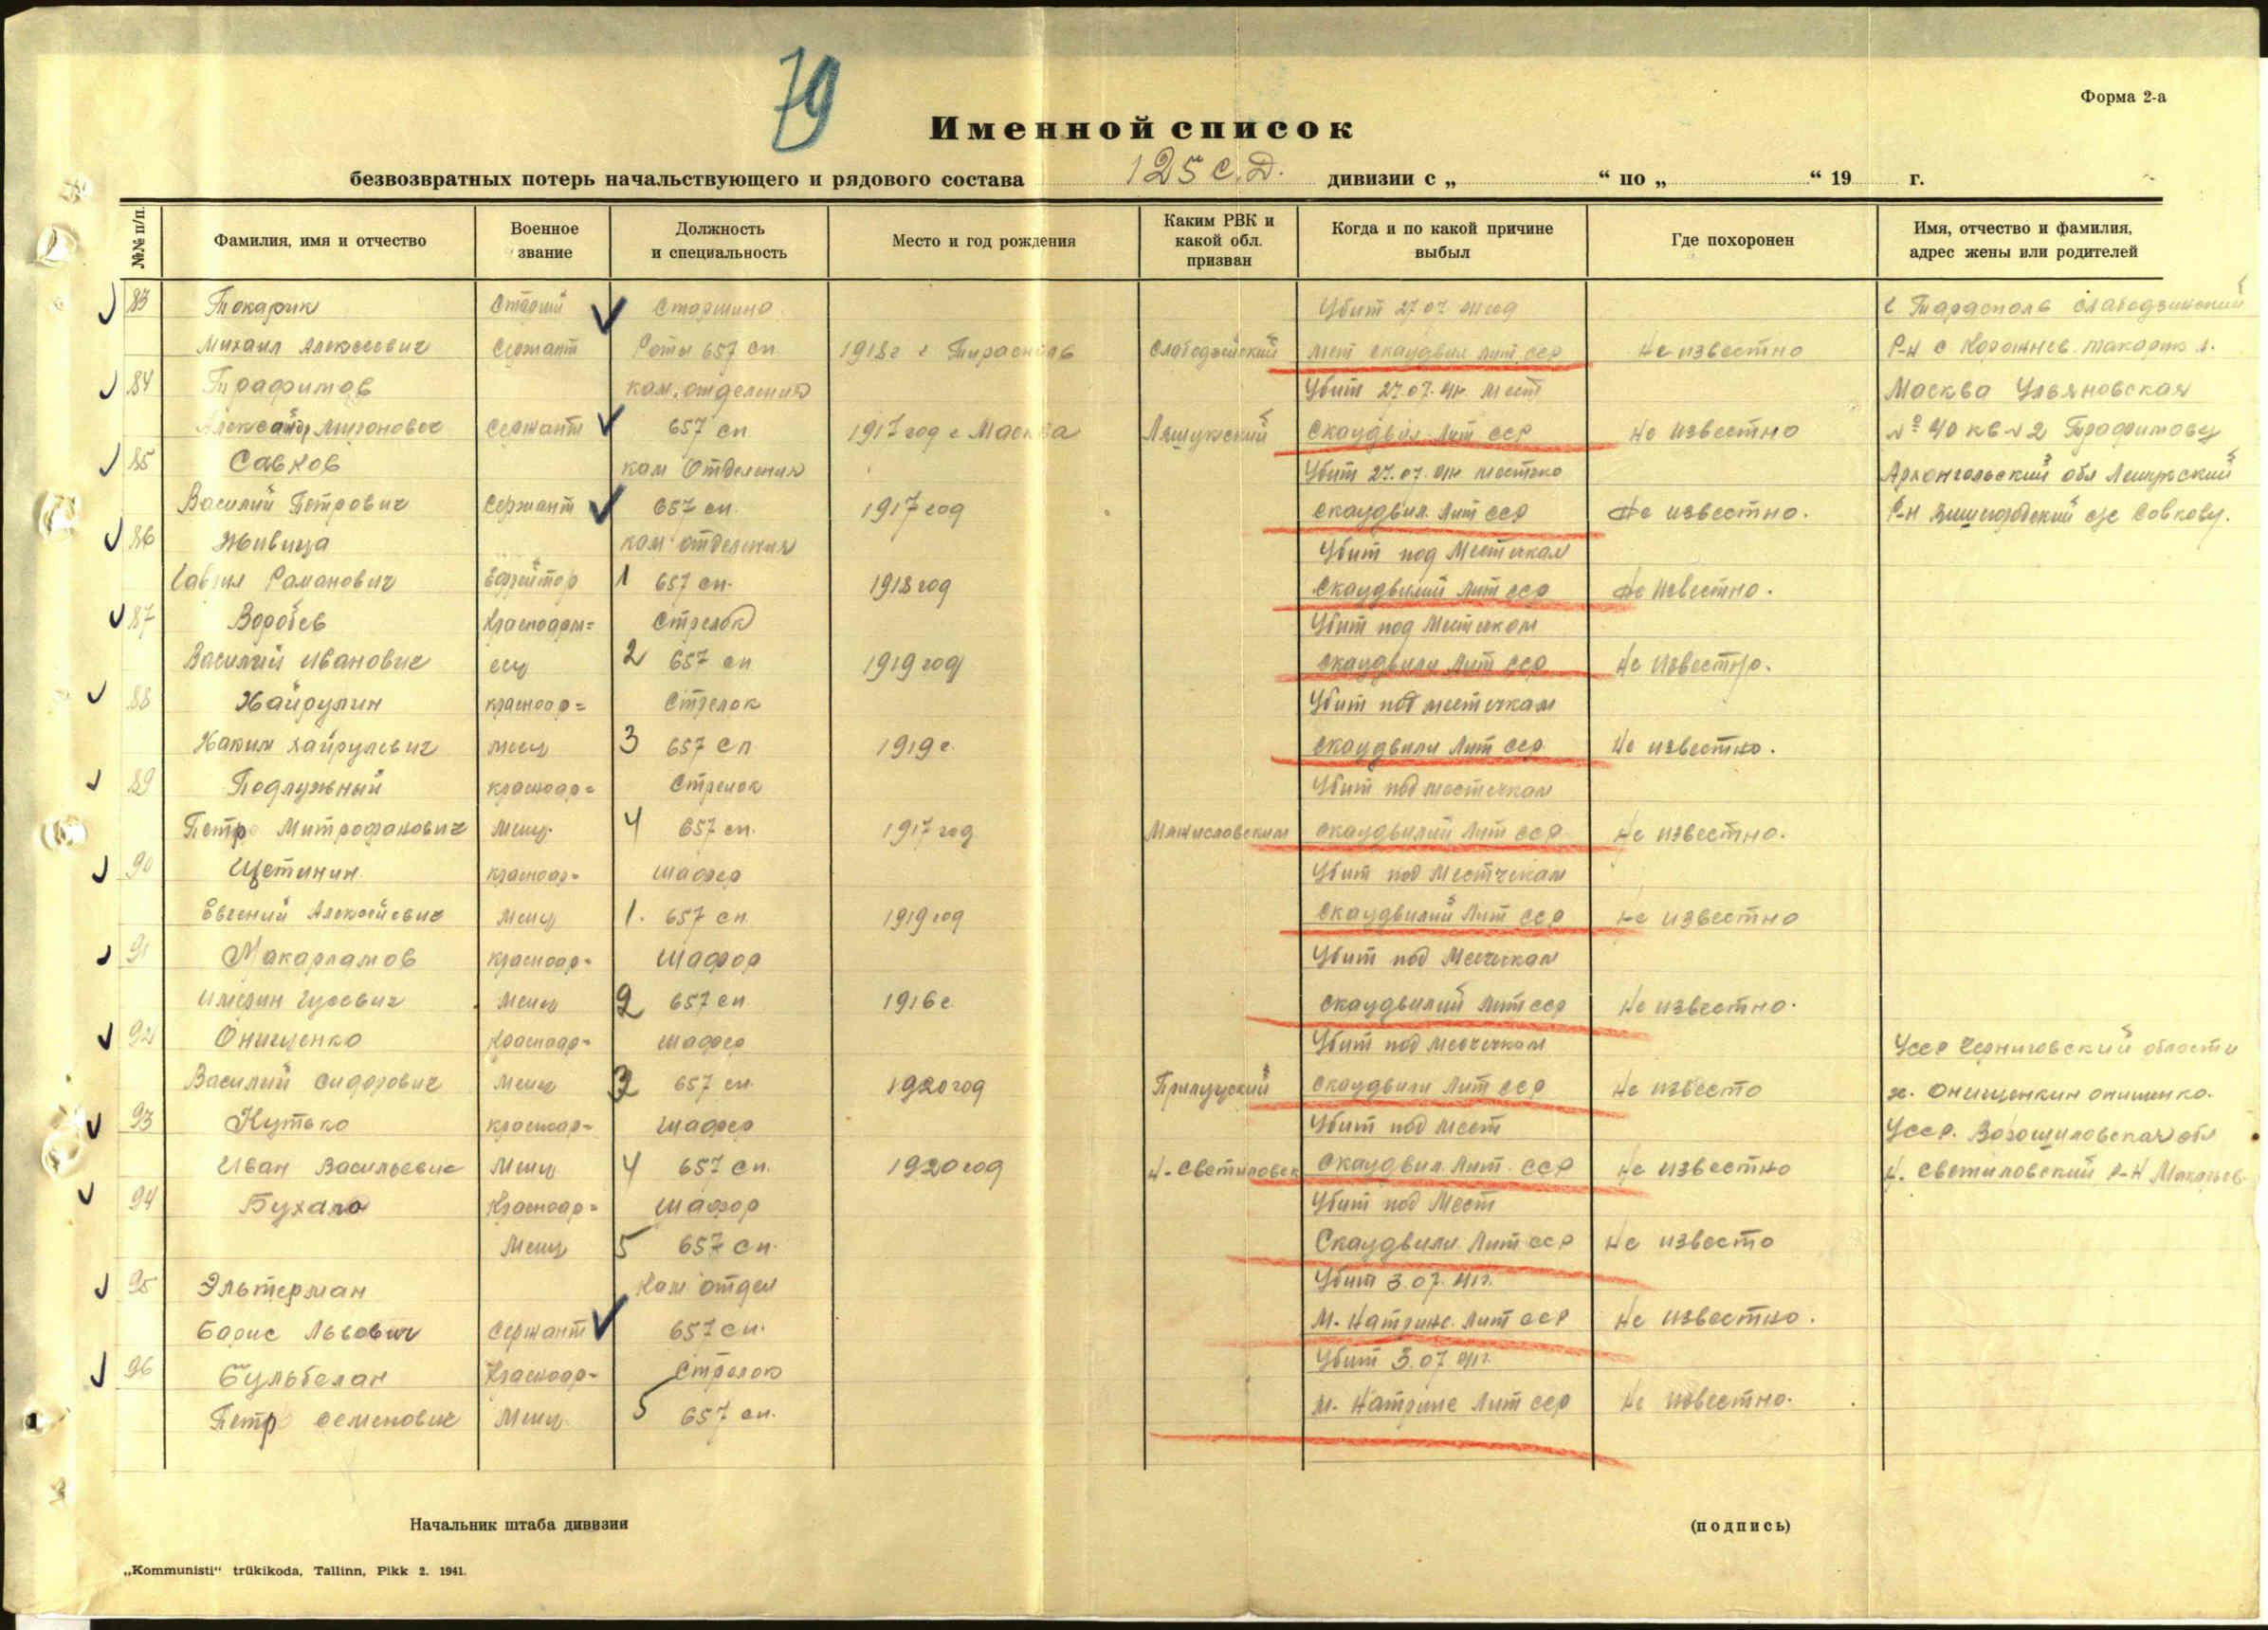 79
Форма 2-а
Именной список
безвозвратных потерь начальствующего и рядового состава 125 с.д. дивизии с „ “ по „ “ 19 г.
№№ п/п. Фамилия, имя и отчество Военное звание Должность и специальность Место и год рождения Каким РВК и какой обл. призван Когда и по какой причине выбыл Где похоронен Имя, отчество и фамилия, адрес жены или родителей
83 Токарик Старший Старшина Убит 27.07 41 год с Тарасполь Слабодзинский
Михаил Алексеевич Сержант Роты 657 сп 1918 г г Тирасполь Слабодзейский мест скаудвил лит сср Не известно Р-н с
84 Трафимов кам. отделения Убит 27.07.41г. мест Москва Ульяновская
Александр сержант 657 сп 1917 год г Москва Лешукский Скаудвил лит сср Не известно № 40 кв №2 Трафимову
85 Савков кам Отделения Убит 27.07.41г местеко Архонгельский обл Лешукский
Василий Петрович Сержант 657 сп. 1917 год скаудвил. лит сср Не известно. Р-н с/с Совкову.
86 Живица кам отделения Убит под Местечкам
Романович Ефрейтор 1 657 сп. 1918 год Скаудвилий лит сср Не известно.
87 Воробев Красноарм= Стрелок Убит под Местечком
Василий Иванович еец 2 657 сп 1919 год скаудвили лит сср Не известно.
88 Хайрулин красноар= Стрелок Убит под местечкам
Хаким хайрулевич меец 3 657 сп 1919 г. скаудвили лит сср Не известно.
89 Подлужный красноар= Стрелок Убит под местечкам
Петр Митрофанович меец. 4 657 сп. 1917 год скаудвилий лит сср Не известно.
90 Щетинин красноар= шафер Убит под Местечкам
Евгений Алексейевич меец 1. 657 сп. 1919 год скаудвилий лит сср Не известно
91 Макарламов красноар- шафор Убит под Месчекам
меец 2 657 сп 1916 г скаудвилий лит сср Не известно.
92 Онищенко Красноар- шафер Убит под месчечком Усср Черниговский области
Василий Сидорович меец 3 657 сп. 1920 год Прилуцкий скаудвили лит сср Не известо х. Онищенкин онищенко.
93 Кутько красноар- шафер Убит под мест Усср. Ворошиловская обл
Иван Васильевич меец 4 657 сп. 1920 год Н-Светиловск скаудвил. лит. сср Не известно Н. Светиловский Р-Н
94 Бухало Красноар= шафор Убит под Мест
меец 5 657 сп. Скаудвили лит сср Не известо
95 Эльтерман Кам отдел Убит 3.07.41г.
Борис Львович сержант 657 сп. м. Натрине. лит сср Не известно.
96 Бульбелан Красноар- Стрелок Убит 3.07 41г.
Петр Семенович меец 5 657 сп. м. Натрине лит сср Не известно.
Начальник штаба дивизии (подпись)
„Kommunisti“ trükikoda, Tallinn, Pikk 2. 1941.